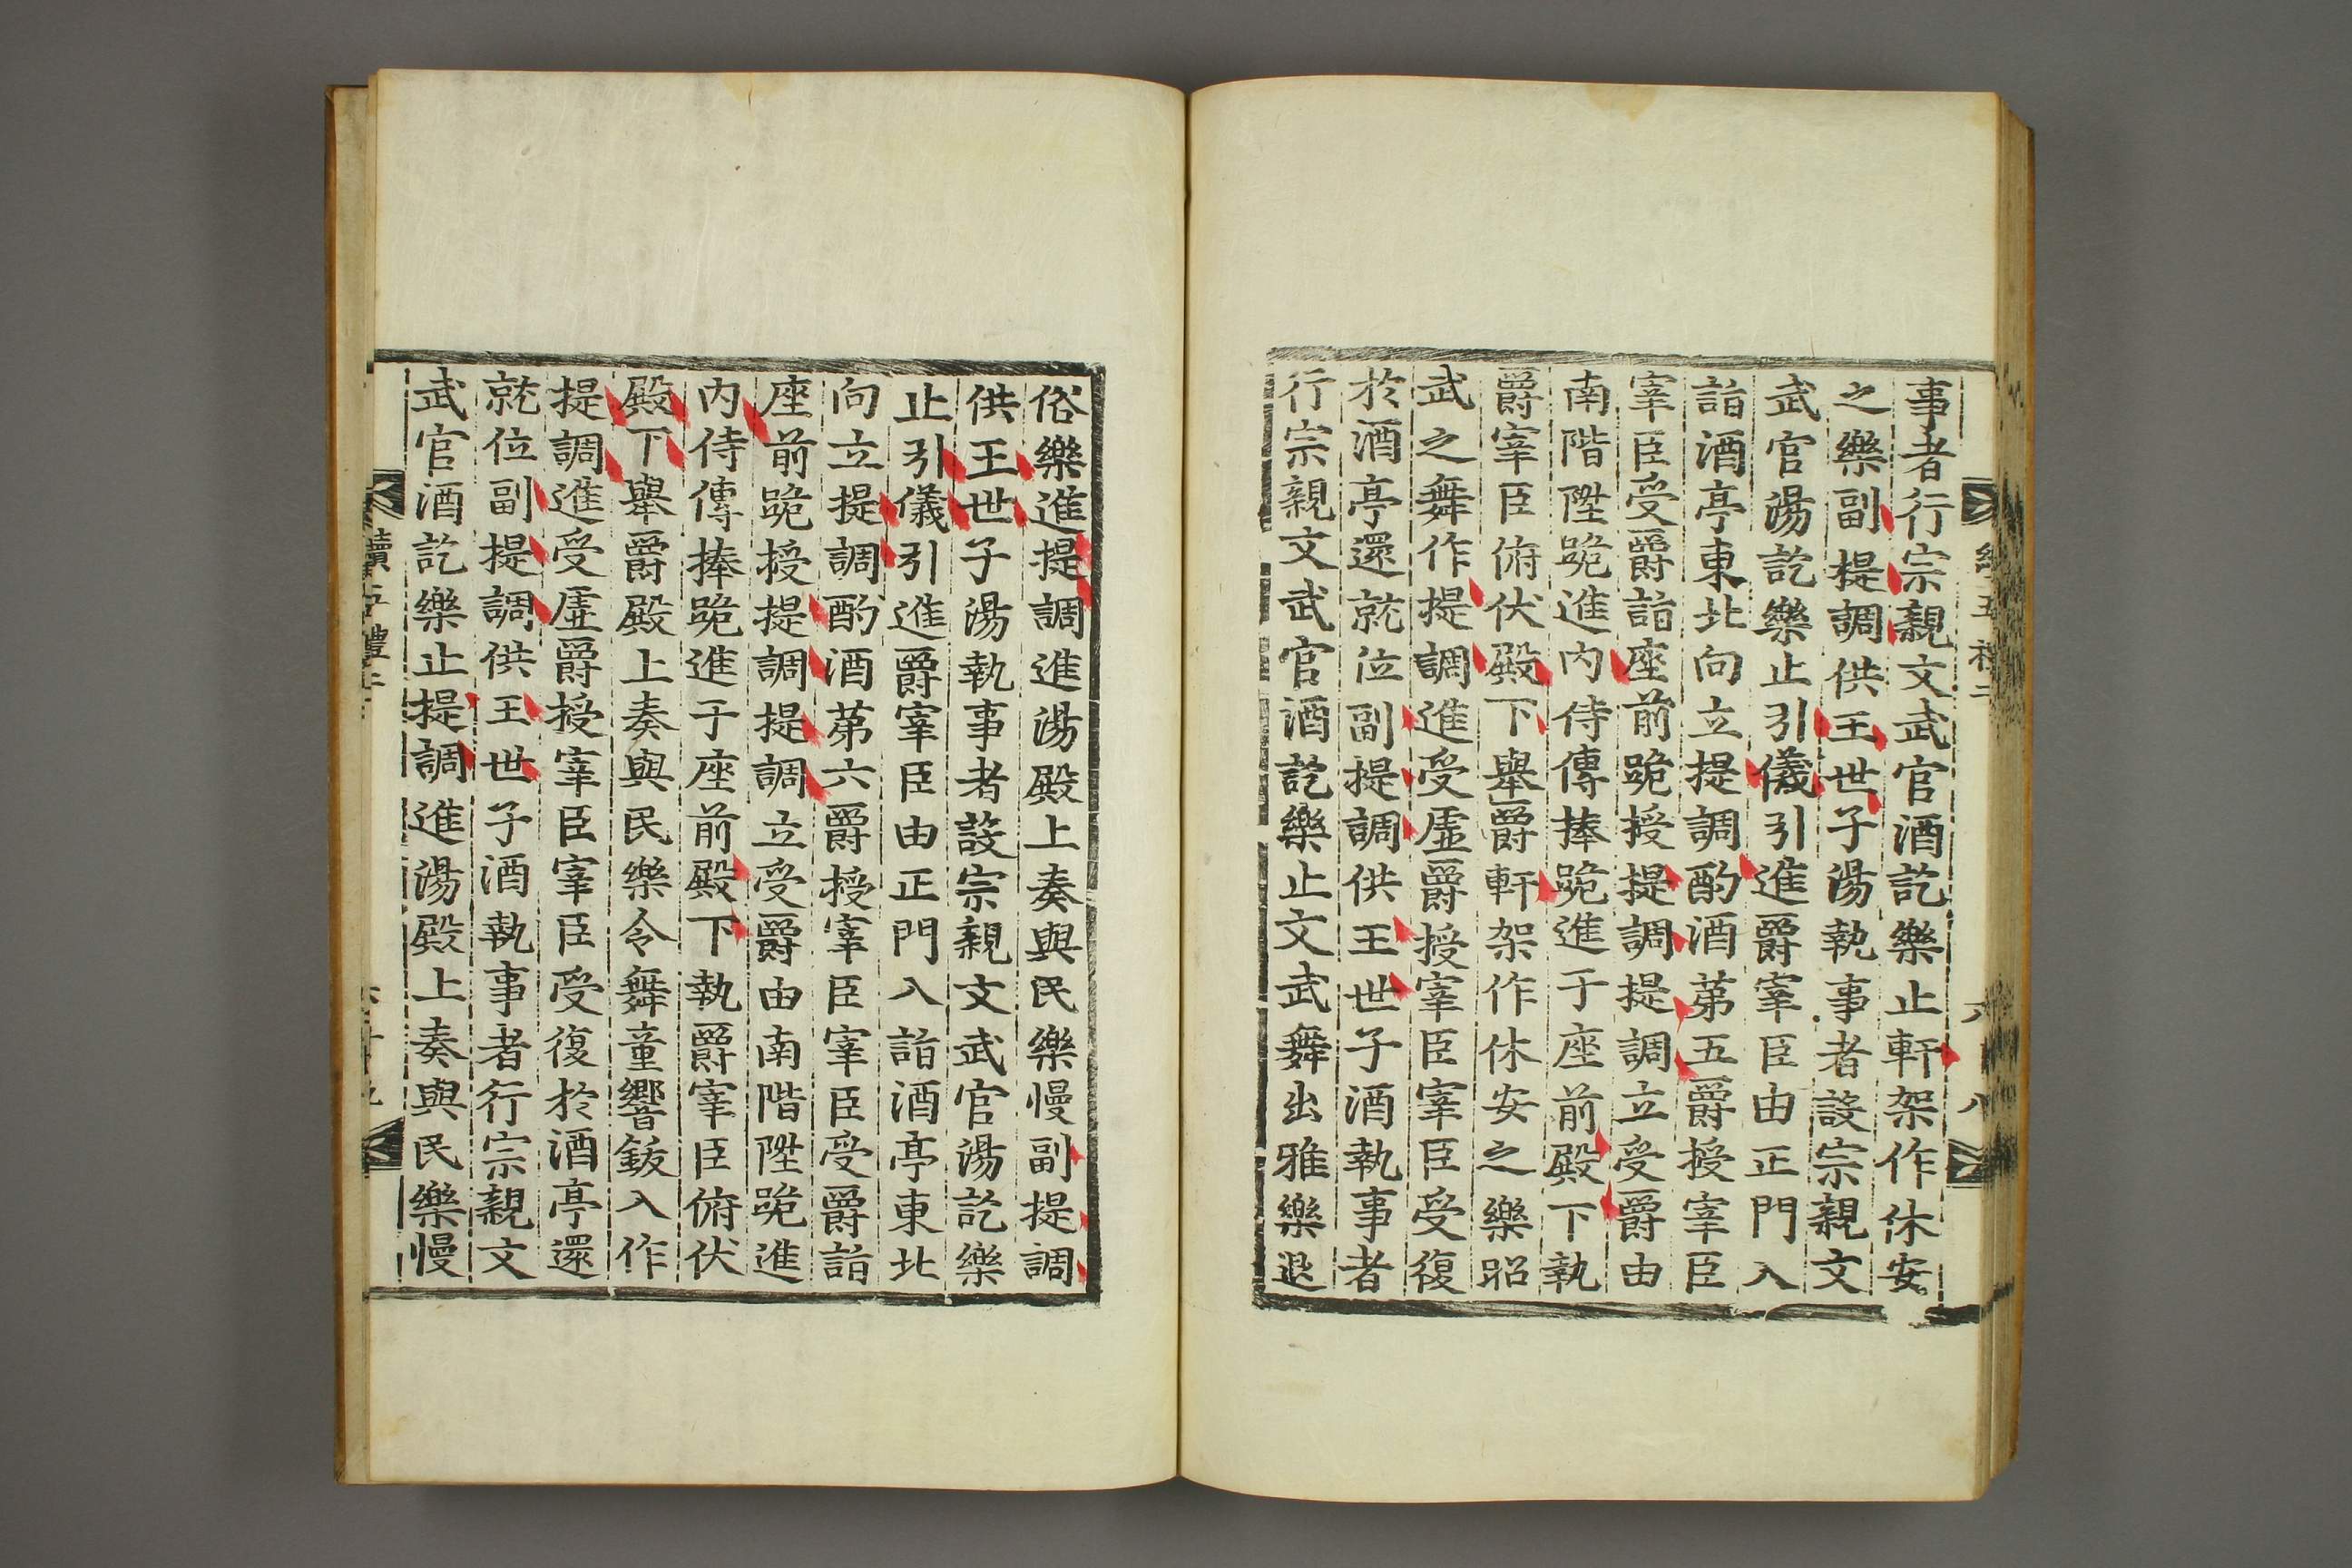 事者行宗親文武官酒訖樂止軒架作休安
之樂副提調供王世子湯執事者設宗親文
武官湯訖樂止引儀引進爵宰臣由正門入
詣酒亭東北向立提調酌酒第五爵授宰臣
宰臣受爵詣座前跪授提調提調立受爵由
南階陞跪進內侍傳捧跪進于座前殿下執
爵宰臣俯伏殿下舉爵軒架作休安之樂昭
武之舞作提調進受虛爵授宰臣宰臣受復
於酒亭還就位副提調供王世子酒執事者
行宗親文武官酒訖樂止文武舞出雅樂退
俗樂進提調進湯殿上奏與民樂慢副提調
供王世子湯執事者設宗親文武官湯訖樂
止引儀引進爵宰臣由正門入詣酒亭東北
向立提調酌酒第六爵授宰臣宰臣受爵詣
座前跪授提調提調立受爵由南階陞跪進
內侍傳捧跪進于座前殿下執爵宰臣俯伏
殿下舉爵殿上奏與民樂令舞童響鈸入作
提調進受虛爵授宰臣宰臣受復於酒亭還
就位副提調供王世子酒執事者行宗親文
武官酒訖樂止提調進湯殿上奏與民樂慢